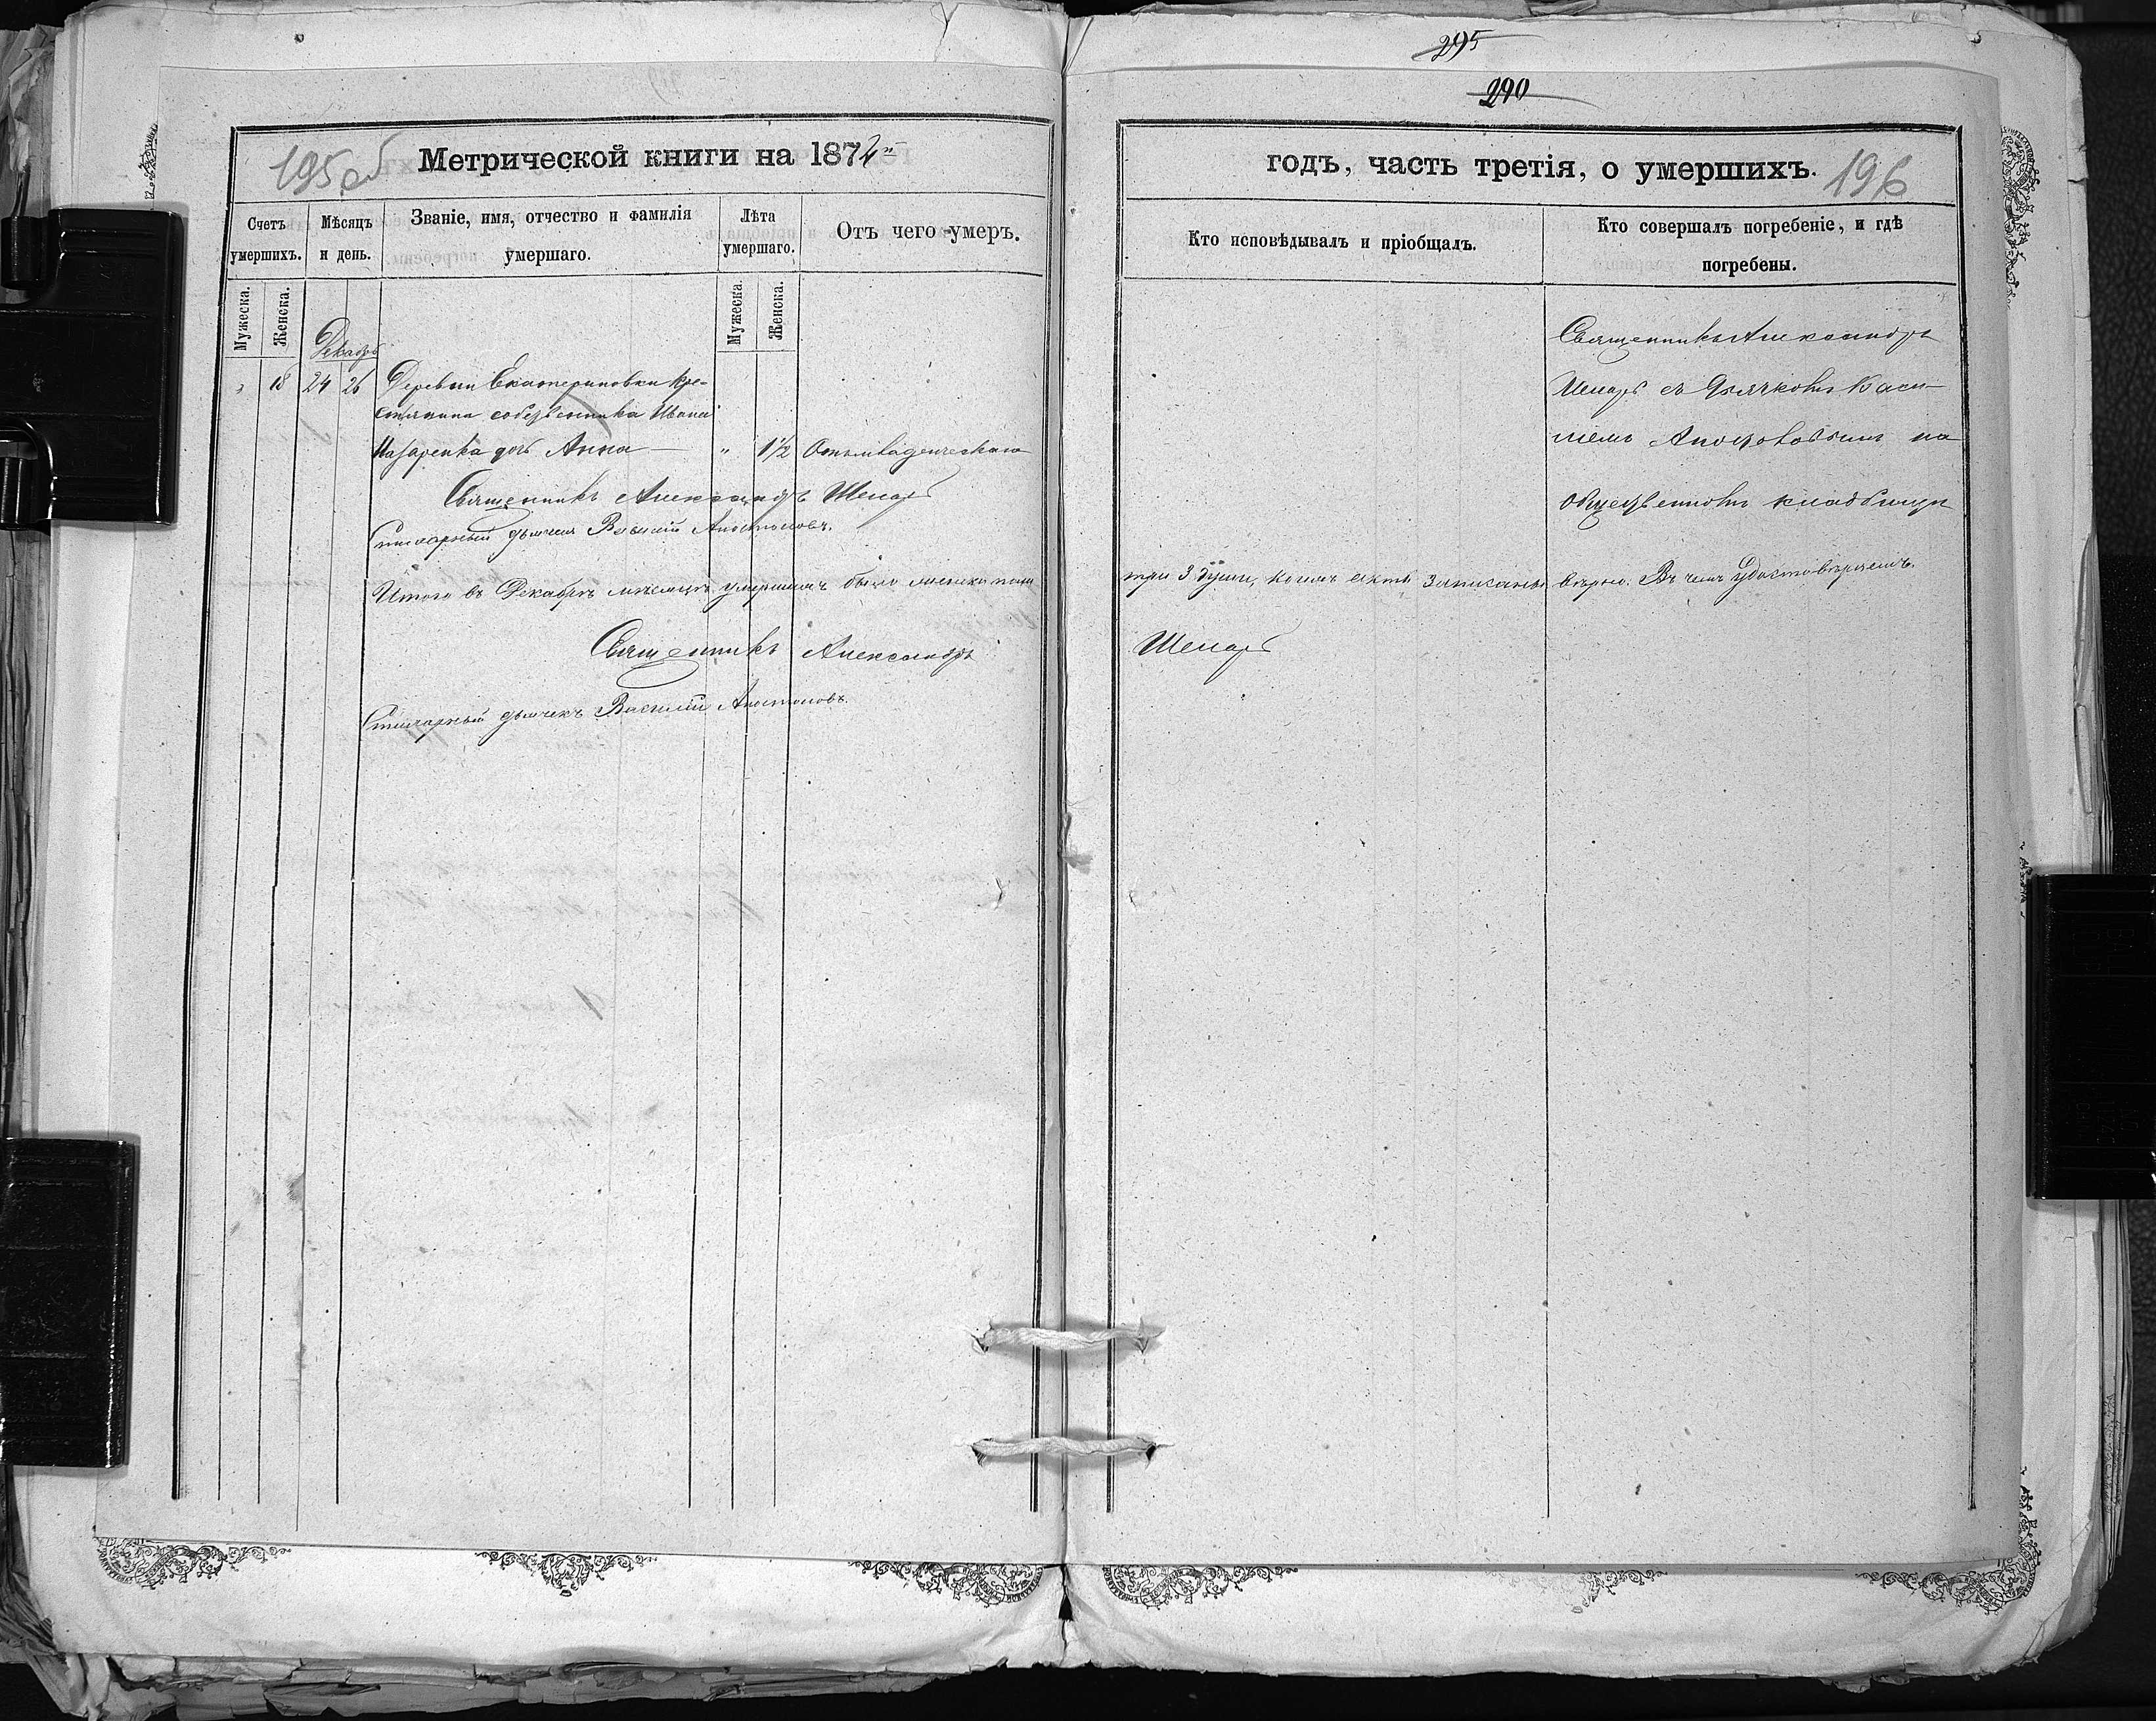 295
290
195 об
Метрической книги на 1874й
годъ, часть третія, о умершихъ.
196
Счетъ умершихъ.
Мѣсяцъ и день.
Званіе, имя, отчество и фамилія умершаго.
Лѣта умершаго.
Отъ чего умеръ.
Кто исповѣдывалъ и пріобщалъ.
Кто совершалъ погребеніе, и гдѣ погребены.
Мужеска.
Женска.
Мужеска.
Женска.
Декабрь
„ 18 24 26 Деревни Екатериновки кре-
стянина собственника Ивана
Назаренка дочь Анна — „ 1½
Священникъ Александръ
Стихарный дьячекъ Василій Апостоловъ.
Священникъ Александръ
съ Дьячкомъ Васи-
ліемъ Апостоловымъ на
общественномъ кладбищѣ
Итого въ Декабрѣ мѣсяцѣ умершихъ было женска пола
три 3 души, коихъ акты записаны вѣрно. Въ чемъ удостовѣряемъ.
Священникъ Александръ
Стихарный дьячекъ Василій Апостоловъ.